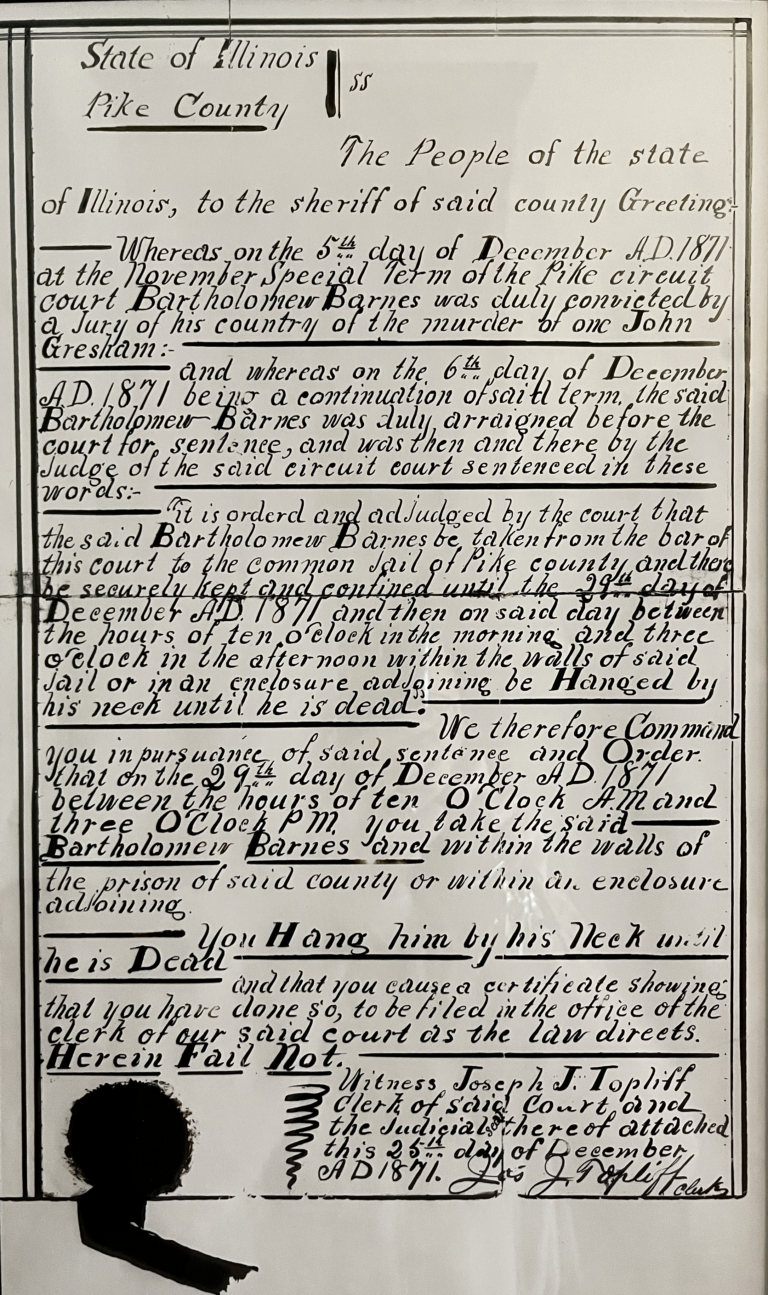 State of Illinois
ss
Pike County
The People of the state
of Illinois, to the sheriff of said county Greeting:-
Whereas on the 5th day of December A.D. 1871
at the November Special Term of the Pike circuit
court Bartholomew Barnes was duly convicted by
a Jury of his country of the murder of one John
Gresham:-
and whereas on the 6th day of December
A.D. 1871 being a continuation of said term, the said
Bartholomew Barnes was duly arraigned before the
court for sentence, and was then and there by the
Judge of the said circuit court sentenced in these
words:-
"it is orderd and adJudged by the court that
the said Bartholomew Barnes be taken from the bar of
this court to the common Jail of Pike county and there
be securely kept and confined until the 29th day of
December A.D. 1871 and then on said day between
the hours of ten o'clock in the morning and three
o'clock in the afternoon within the walls of said
Jail or in an enclosure adJoining be Hanged by
his neck until he is dead."
We therefore Command
you in pursuance of said sentence and Order.
that on the 29th day of December A.D. 1871
between the hours of ten O'Clock A.M and
three O'Clock P.M. you take the said
Bartholomew Barnes and within the walls of
the prison of said county or within an enclosure
adJoining.
You Hang him by his Neck until
he is Dead
and that you cause a certificate showing
that you have done so, to be filed in the office of the
clerk of our said court as the law directs.
Herein Fail Not.
Witness Joseph J. Topliff
Clerk of said Court and
the Judicial seal thereof attached
this 25th day of December
A D 1871. Jos J. Topliff clerk